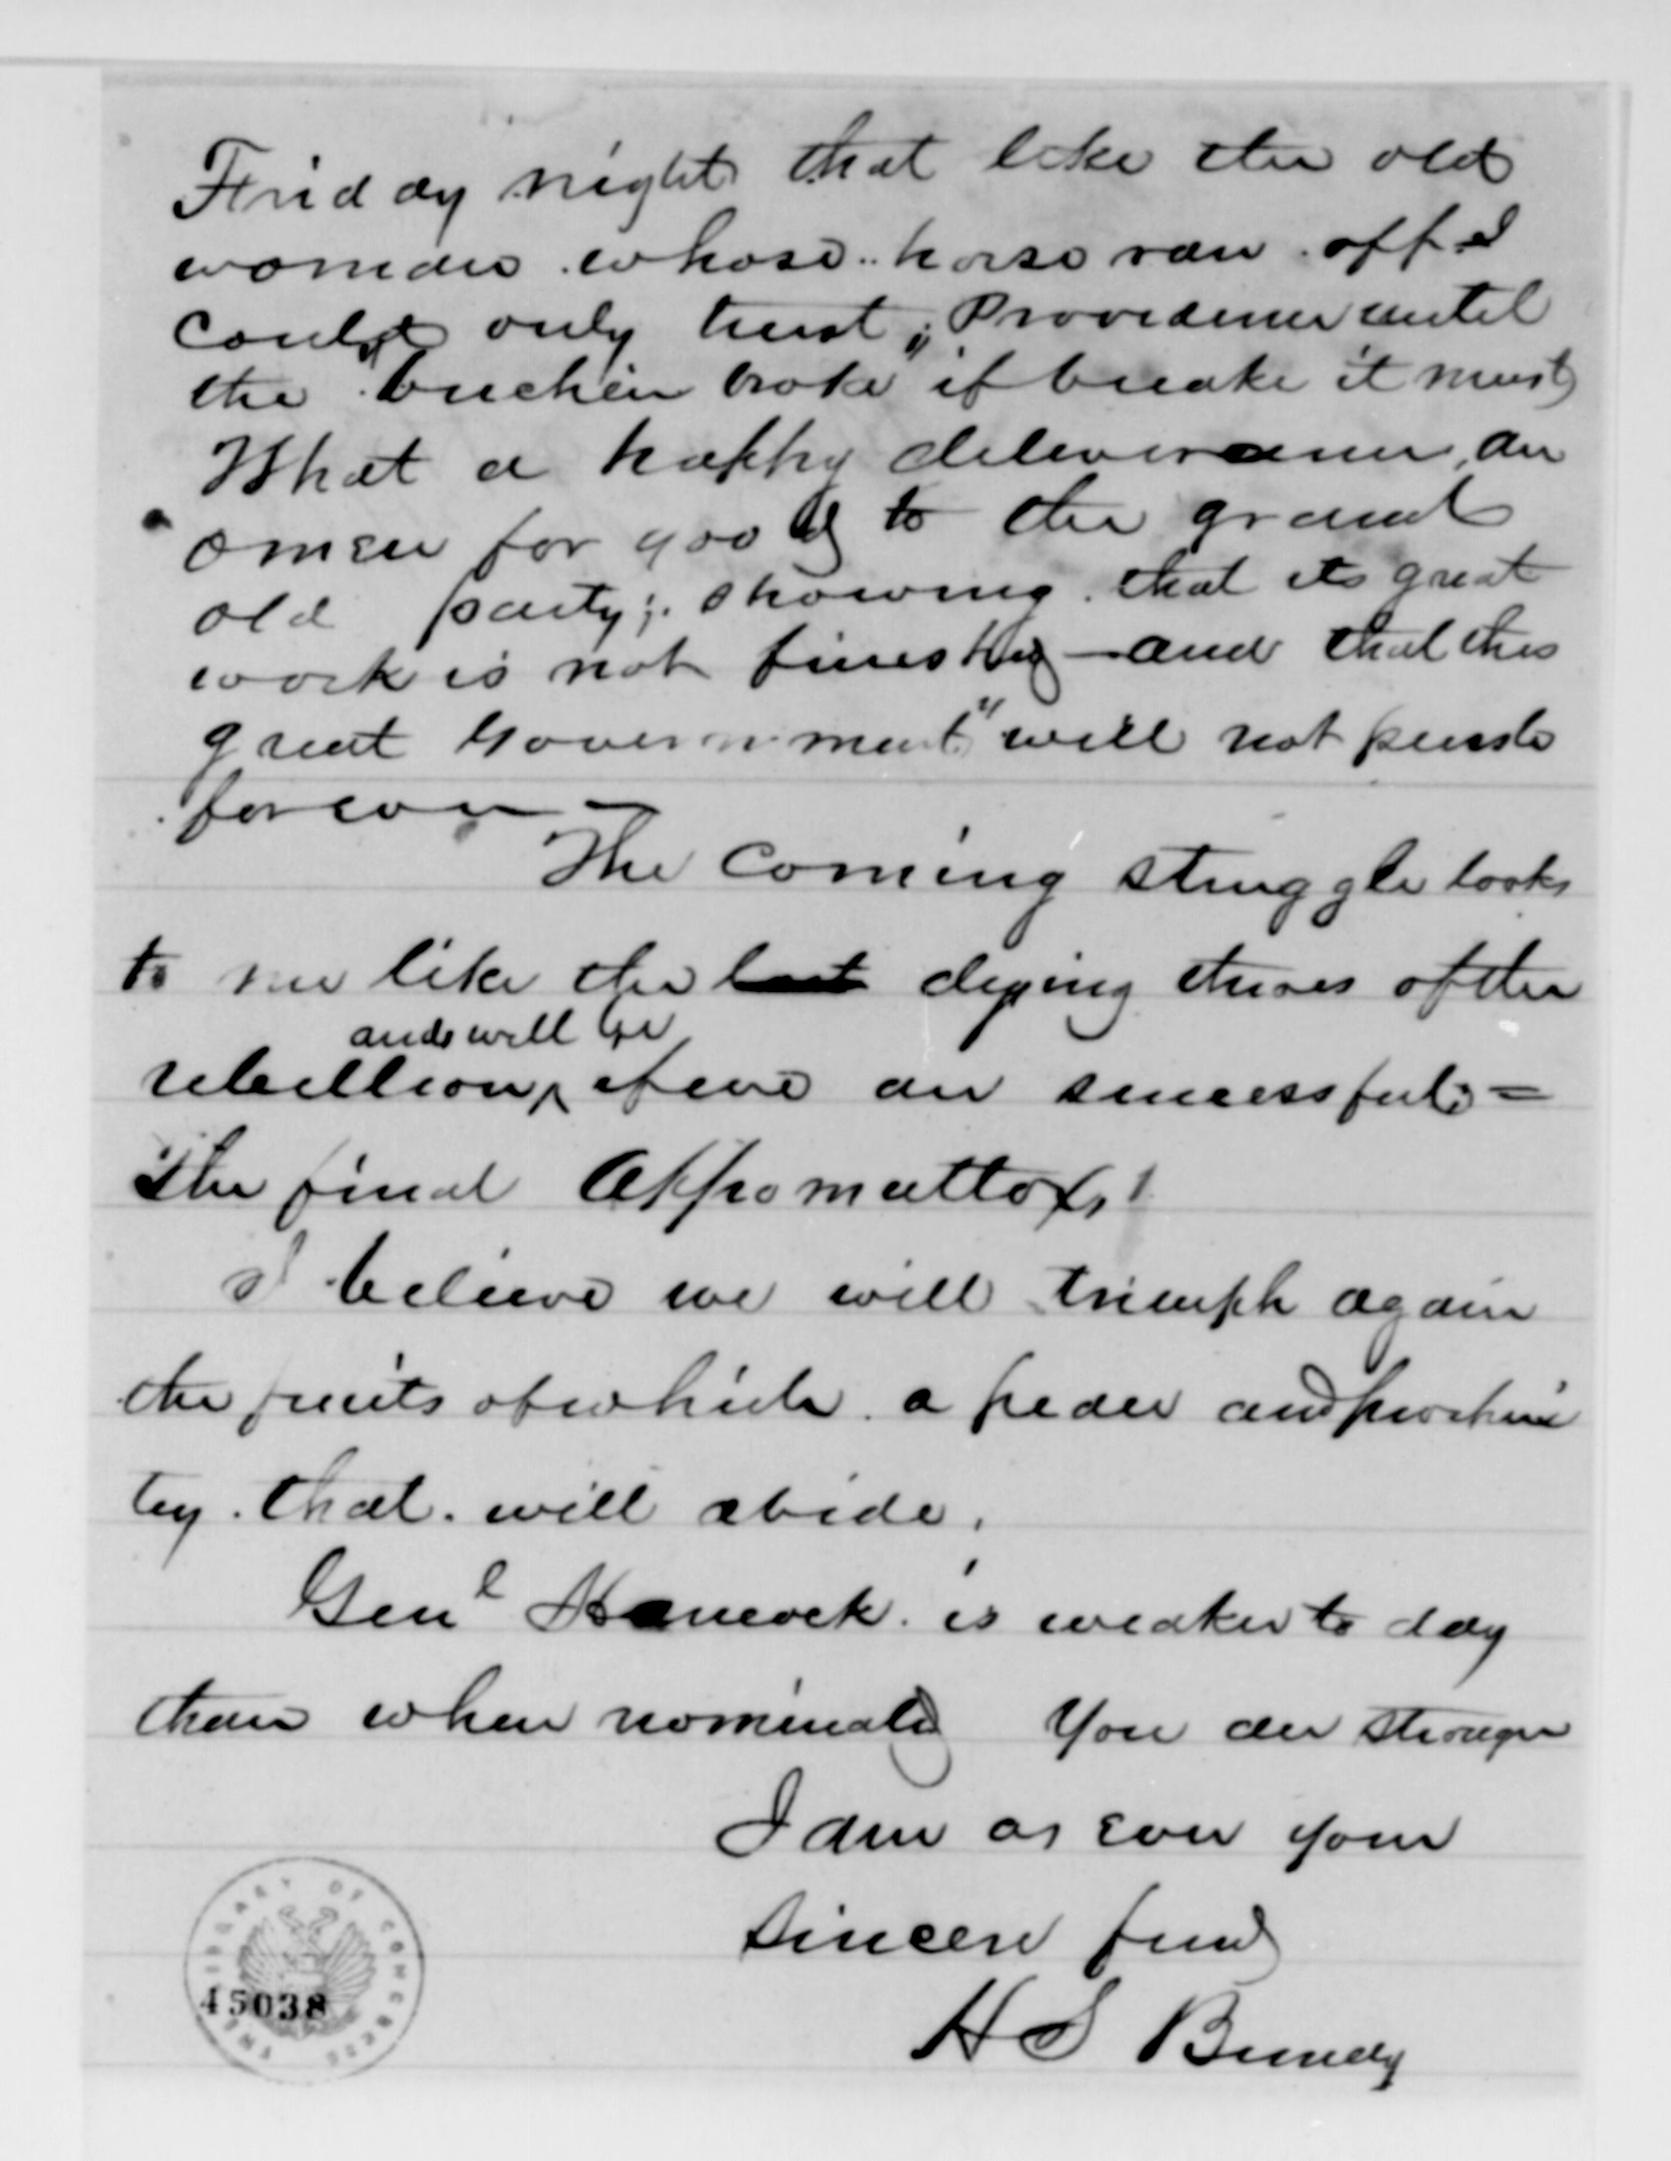 Friday night that like the old
woman whose horse ran off I
could only trust "Providence until
the "brichin broke" if breake it must
What a happy deliverance, an
omen for good to the grand
old party; showing that its great
work is not finished—and that this
great Government" will not perish
forever—
The coming struggle looks
to me like the last dying throes of the
and will be
rebellion, if we are successful; =
the final Appomattox!
I believe we will triumph again
the fruits of which a peace and prosperi
ty that will abide.
Genl Hancock is weaker to day
than when nominated You are stronger
I am as ever your
sincere friend
H S Bundy
THE LIBRARY OF CONGRESS
45038